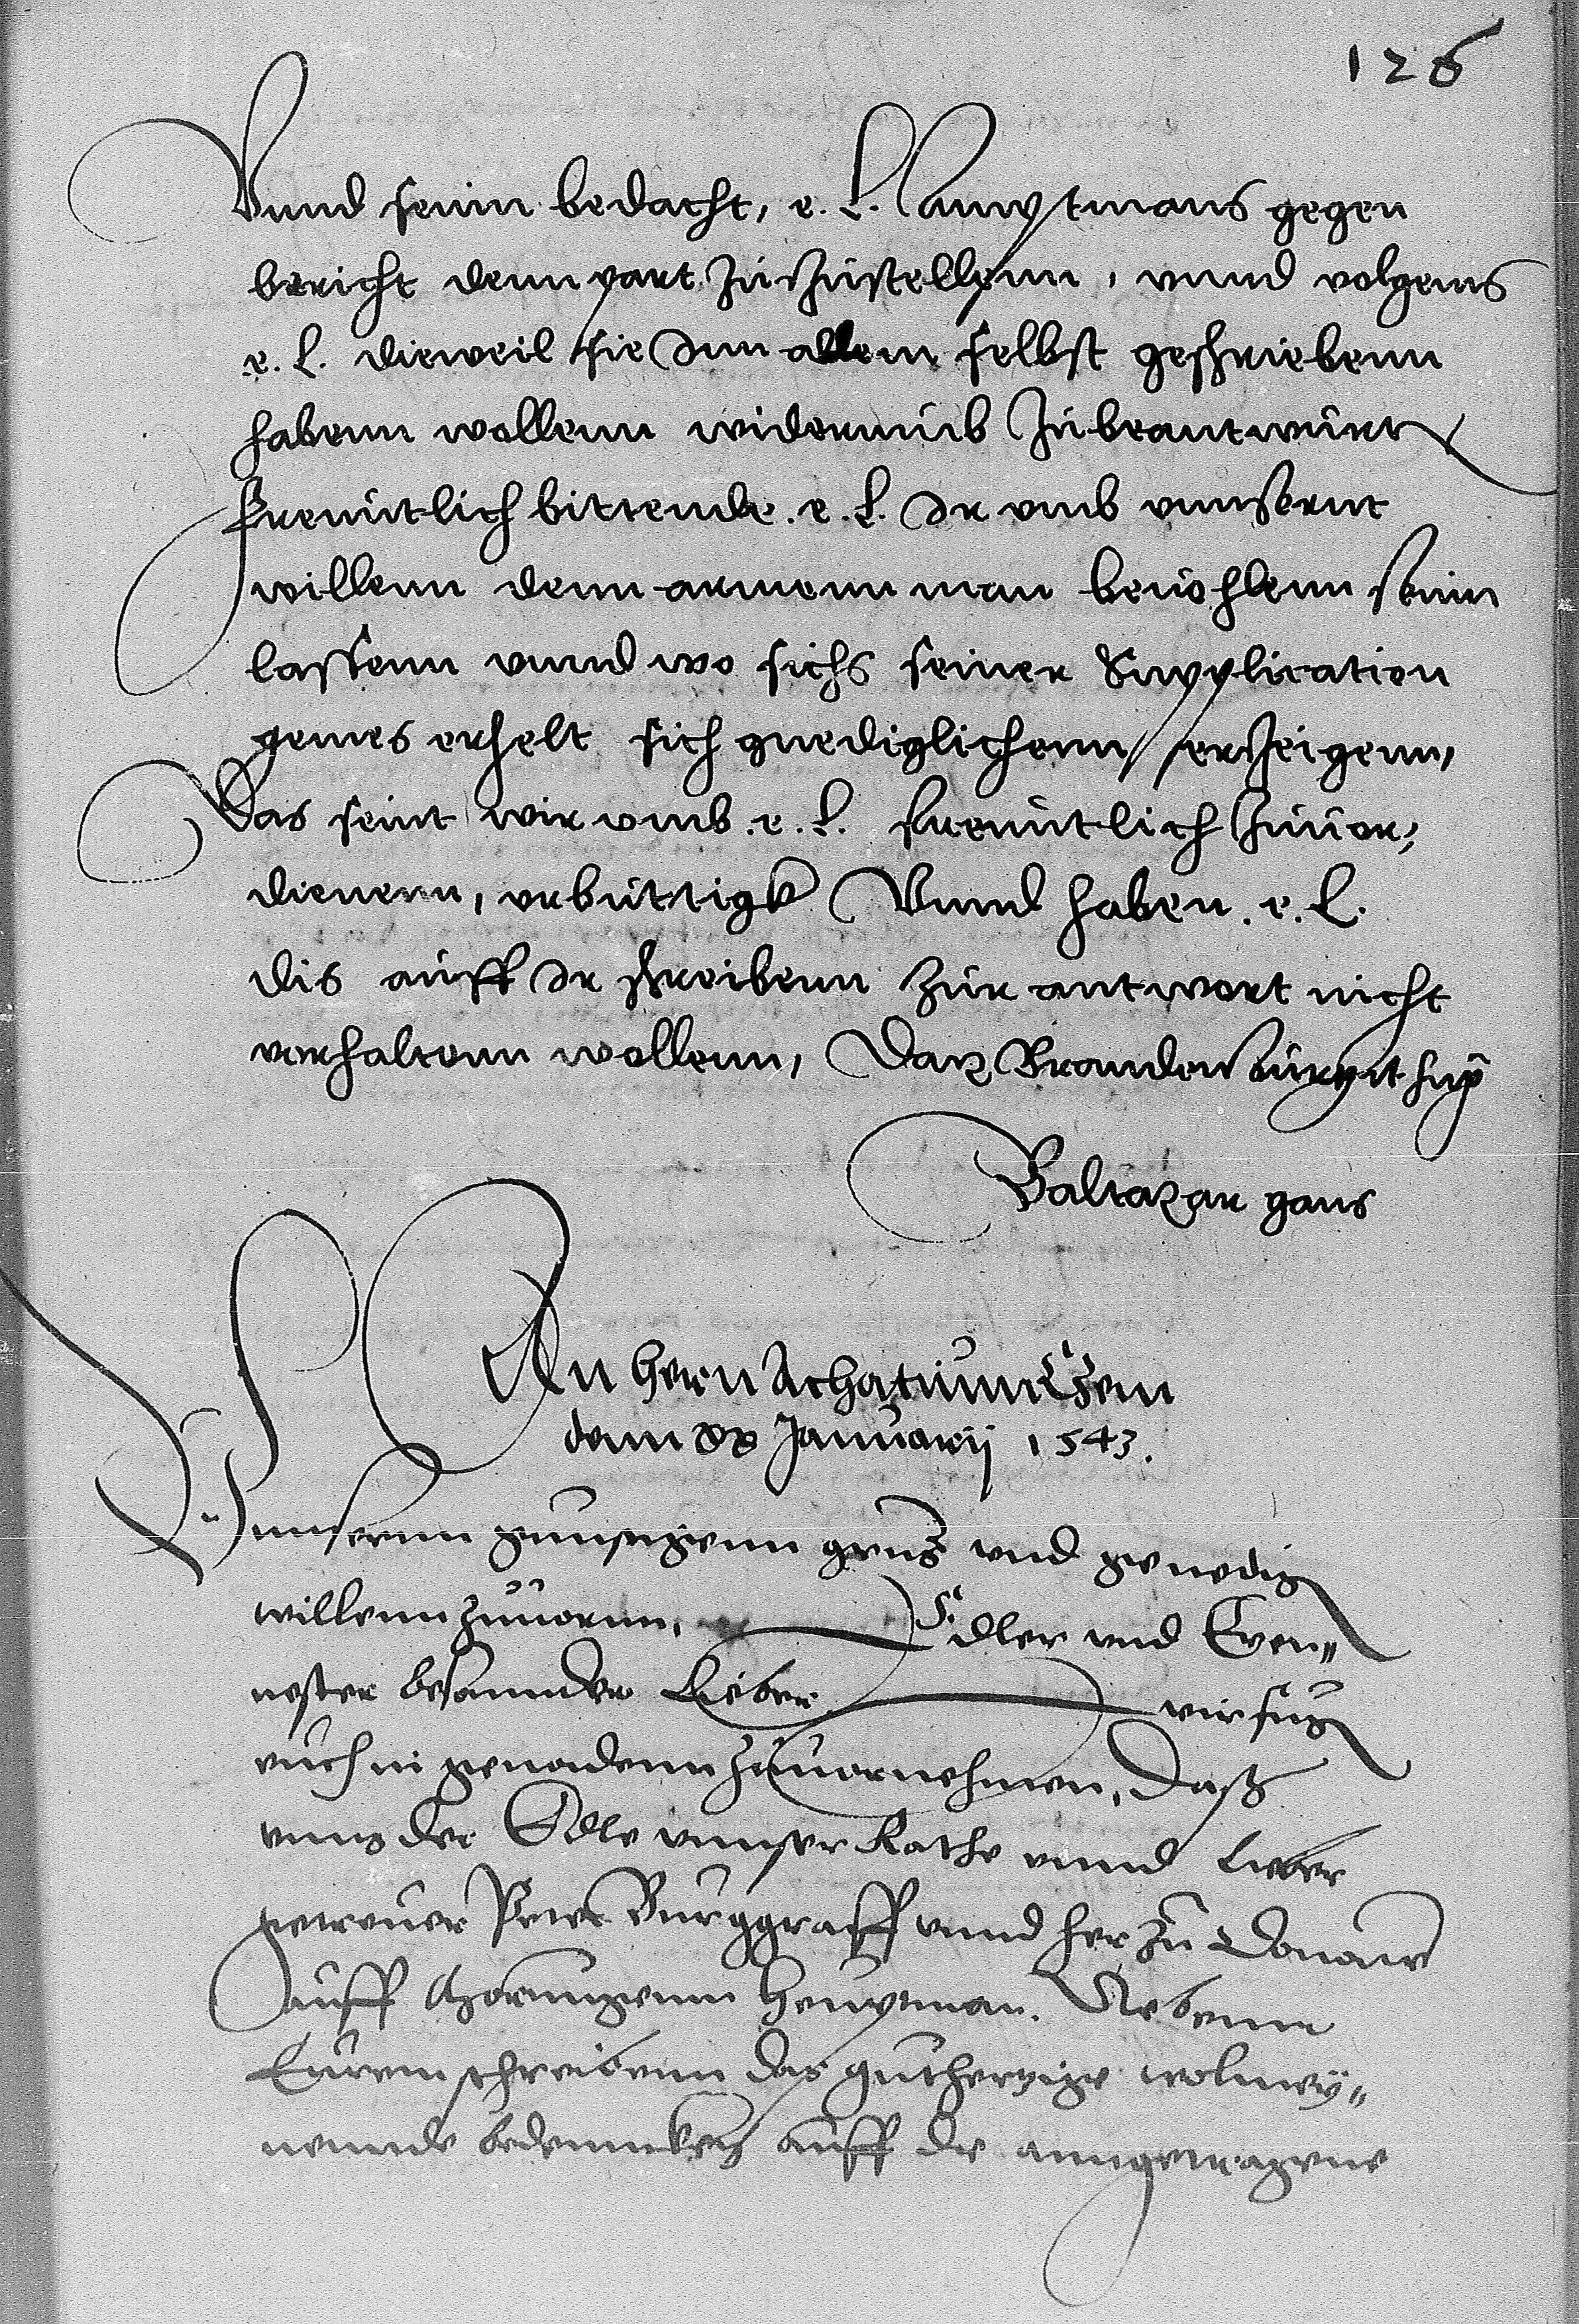 126
Vnnd seinn bedacht, e. L. Hauptmans gegen
bericht denn part zuzustellenn, vnnd volgens
e. L. dieweil sie Inn allem selbst geschriebenn
habenn wollenn widerumb Zubeantwurt
freuntlich bittende. e. L. Ir vmb vnnsernt
willenn denn armenn man beuohlenn seinn
lassenn vnnd wo sichs seiner Supplication
gemes erhelt sich gnediglichenn erzeigenn,
Das seint wir vmb. e. L. freuntlich Zuuor,
dienenn, vrbuttigk Vnnd haben. e. L.
dis auff Ir schreibenn zur antwort nicht
vorhaltenn wollenn, Datz Brandenburg ut supra
Baltazar gans
An hern Achatium Czem
denn Januarij 1543.
Vnnsernn gunstigenn grus vnd genedig
willenn zuuornn, Edler vnd Eren,,
nester besonnder Lieber wir fug
euch in genadenn zuuornehmen, Daß
vnns der Edle vnnser Rathe vnnd Lieber
getreuer Peter Burggraff vnnd her zu Donaw
auff Morungenn Heuptman. Nebenn
Eurem schreibenn das gutherzige wolmey,,
nennde bedennken auff die anngetragene